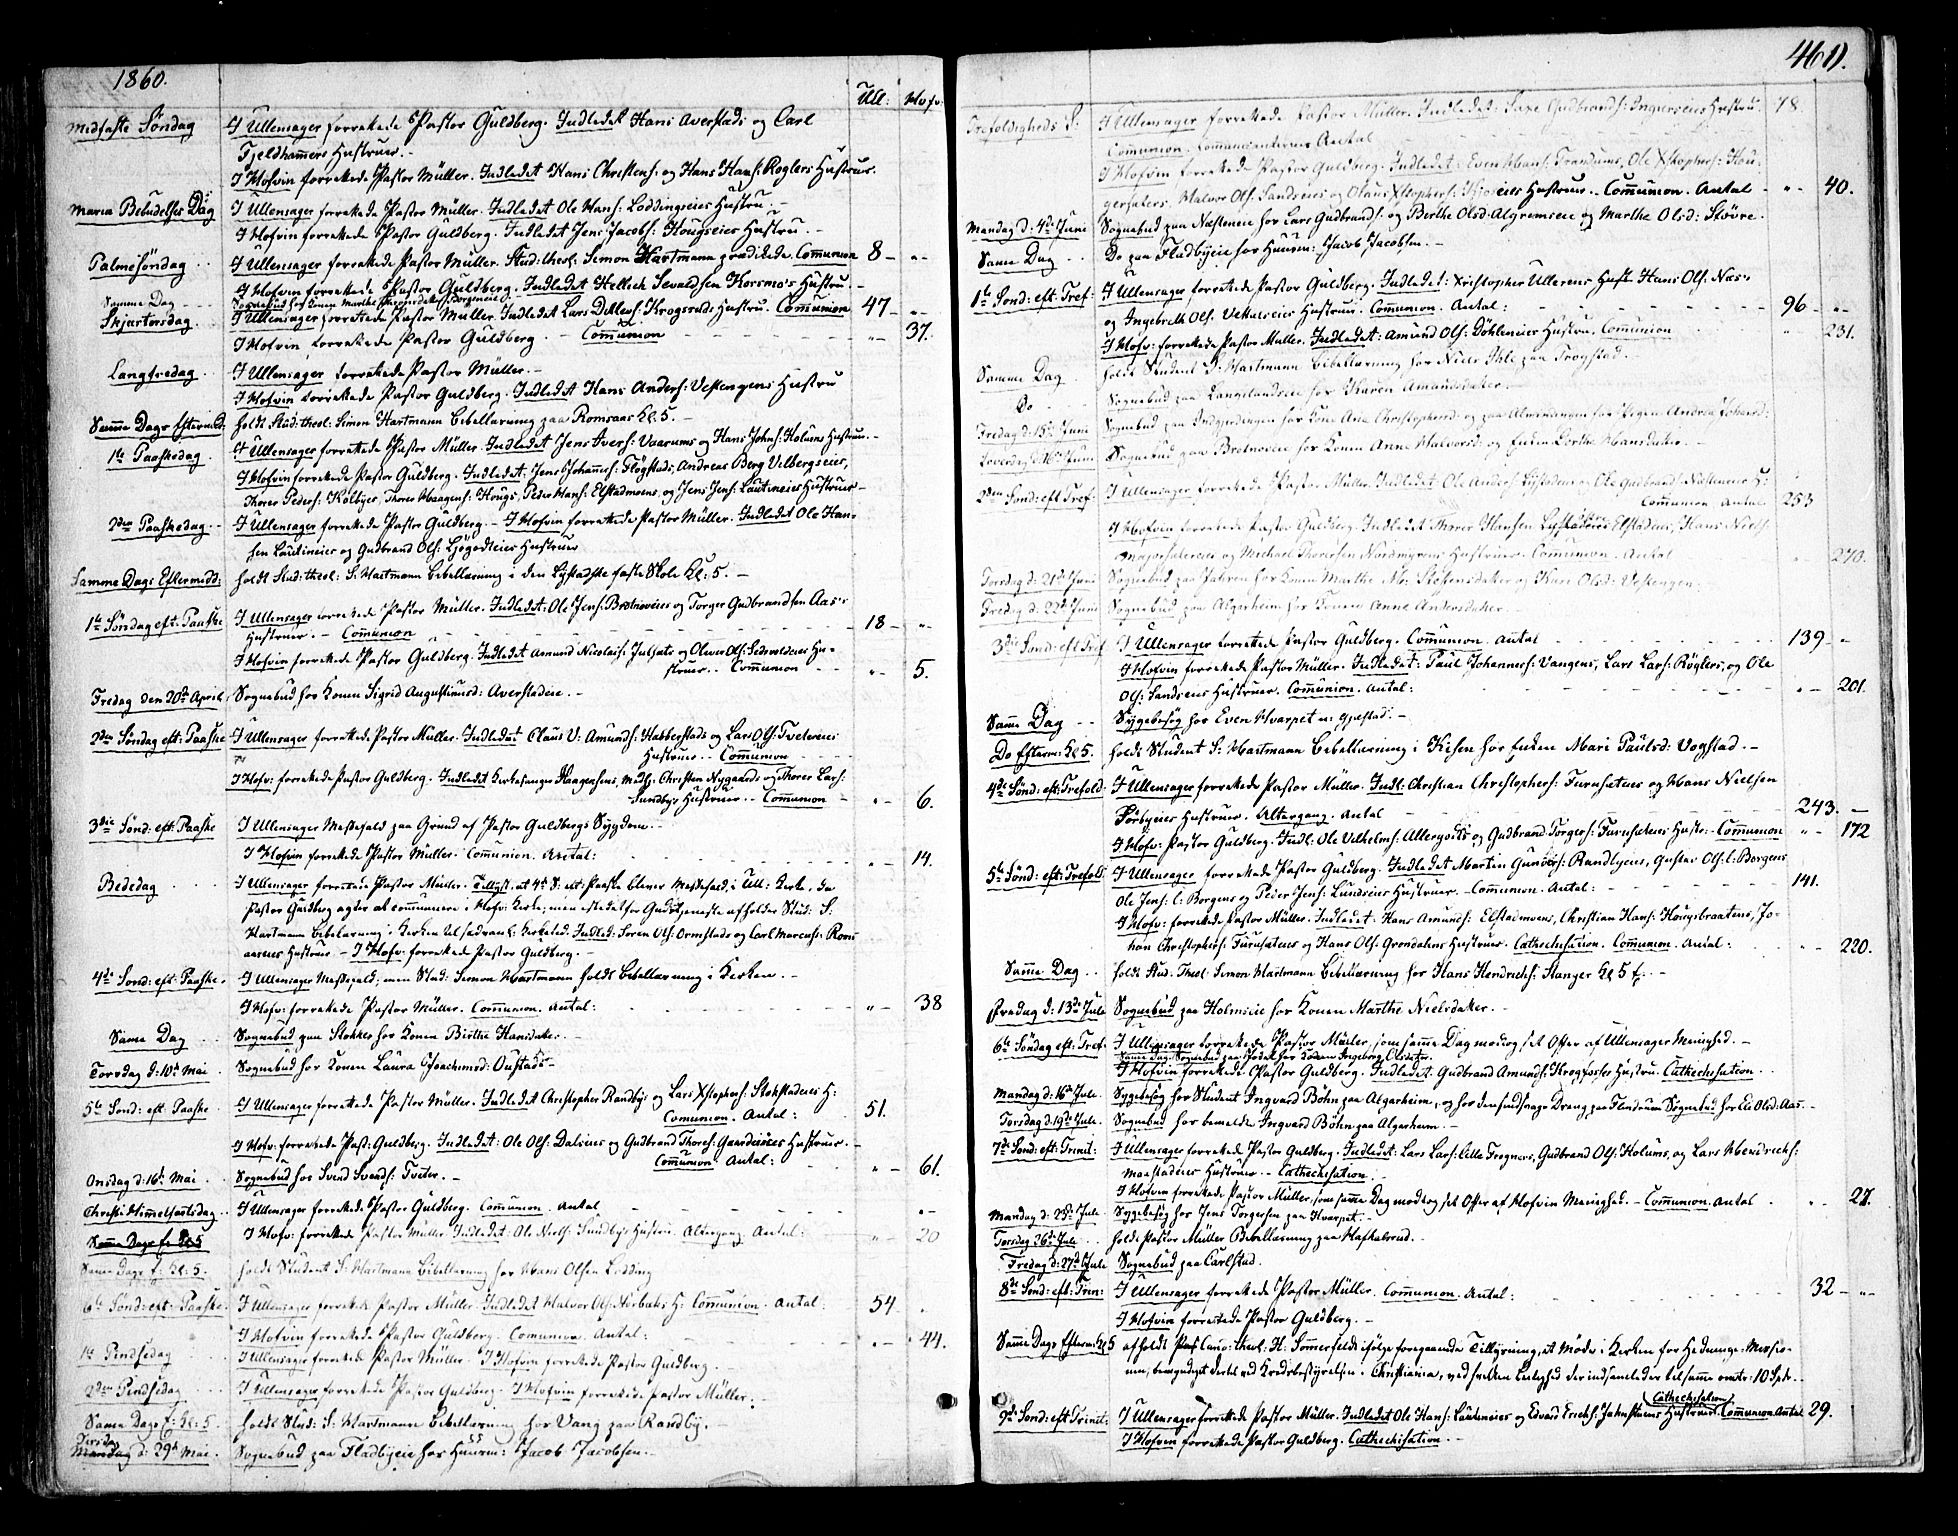 1860.
Ull: Hofv:
Midfaste Söndag I Ullensager forrettede Pastor Guldberg. Indledet Hans Averstads og Carl
Fjeldhamers Hustruer. -
I Hofvin forrettede Pastor Müller. Indledet Hans Christens: og Hans Hans: Roglers Hustruer.
Maria Bebudelses Dag I Ullensager forrettede Pastor Müller. Indledet Ole Hans: Loddingseies Hustru. -
I Hofvin forrettede Pastor Guldberg. Indledet Jens Jacobs: Hougseies Hustru. -
Palmesöndag I Ullensager forrettede Pastor Müller. Stud: theol: Simon Hartmann prædikede. Communion 8 - "-
I Hofvin forrettede Pastor Guldberg. Indledet Hellich Sevaldsen Horsmo's Hustru. -
Samme Dag Sognebud hos Konen Marthe
Skjærtorsdag I Ullensager forrettede Pastor Müller. Indledet Lars Ditlevs: Krogsruds Hustru. Communion 47 - "-
I Hofvin forrettede Pastor Guldberg. - Communion "- 37.
Langfredag I Ullensager forrettede Pastor Müller. -
I Hofvin forrettede Pastor Guldberg. Indledet Hans Anders: Vestengens Hustru
Samme Dags Eftermid: holdt Stud: theol: Simon Hartmann Bibellæsning paa Romsaas Kl. 5. -
1ste Paaskedag I Ullensager forrettede Pastor Müller. Indledet Jens Ivers: Vaarums og Hans Johs: Holums Hustruer. -
I Hofvin forrettede Pastor Guldberg. Indledet: Jens Johannes: Flögstads, Andreas Berg Velbergseies,
Thorer Peders: Kölbyes, Thorer Haagens: Hougs, Peder Hans: Elstadmoens, og Jens Jens: Lautineies Hustruer
2den Paaskedag I Ullensager forrettede Pastor Guldberg. - I Hofvin forrettede Pastor Müller. Indledet Ole Han-
sen Lautineies og Gudbrand Ols: Hustruer
Samme Dags Eftermidd: holdt Stud: theol: S. Hartmann Bibellæsning i den Lystadske faste Skole Kl: 5. -
1ste Söndag eft. Paaske I Ullensager forrettede Pastor Müller. Indledet: Ole Jens: Brotnoeies og Torger Gudbrandsen Aas's
Hustruer. - Communion 18 - "-
I Hofvin forrettede Pastor Guldberg. Indledet Amund Nicolais: Julsets og Oliver Ols: Hu-
struer. - Communion "- 5.
Fredag den 20de April Sognebud hos Konen Sigrid Augustinusd: Averstadeie. -
2den Söndag eft: Paaske I Ullensager forrettede Pastor Müller. Indledet Claus V: Amunds: Habberstads og Lars Ols: Tvetereies
Hustruer. - Communion
I Hofv: forrettede Pastor Guldberg. Indledet Kirkesanger Haagensens, Christen Nygaards og Thorer Lars:
Sundbys Hustruer. - Communion "- 6.
3die Sönd: eft: Paaske I Ullensager Messefald paa Grund af Pastor Guldbergs Sygdom. -
I Hofvin forrettede Pastor Müller. Communion. Antal: "- 14.
Bededag I Ullensager forrettede Pastor Müller. Tillyst, at 4de S: eft: Paaske bliver Messefald, i Ull: Kirke, da
Pastor Guldberg agter at communicere i Hofv: Kirke; men istedetfor Gudstjeneste afholder Stud: S:
Hartmann Bibellæsning i Kirken ved sædvanl: Kirketid. Indled: Soren Ols: Ormstads og Carl Marcus: Rom
aaseies Hustruer - I Hofv: forrettede Pastor Guldberg. -
4de Sönd: eft: Paaske. I Ullensager Messefald, men Stud: Simon Hartmann holdt Bibellæsning i Kirken. -
I Hofv: forrettede Pastor Müller. Communion. Antal: "- 38
Samme Dag Sognebud paa Stokkes hos Konen Birthe Hansdatter. -
Torsdag d: 10de Mai Sognebud hos Konen Laura Joachimsd: Onstad
5te Sönd: eft: Paaske I Ullensager forrettede Pastor Müller. Indledet Christopher Randbys og Lars Xstophers: Stokstadeies H:
Communion. Antal: 51.
I Hofv: forrettede Past: Guldberg. Indledet: Ole Ols: Dalseies og Gudbrand Thores: Hustruer. -
Communion Antal: "- 61.
Onsdag d: 16de Mai Sognebud hos Svend Svends: Tveter. -
Christi Himmelfartsdag I Ullensager forrettede Pastor Guldberg. Communion. Antal
I Hofv: forrettede Pastor Müller. Indledet: Ole Niels: Sundbys Hustru. Altergang. Antal: 20
Samme Dags E: Kl: 5. holdt Student S. Hartmann Bibellæsning hos Hans Olsen Lodding
6te Sönd: eft: Paaske. I Ullensager forrettede Pastor Müller. Indledet Halvor Ols: H: Communion. Antal: 54.
I Hofvin forrettede Pastor Guldberg. Communion. Antal: "- 44.
1ste Pindsedag I Ullensager forrettede Pastor Müller. I Hofvin forrettede Pastor Guldberg.
2den Pindsedag I Ullensager forrettede Pastor Guldberg. I Hofvin forrettede Pastor Müller. -
Samme Dags E: Kl: 5 holdt Stud: S: Hartmann Bibellæsning hos Vang paa Randby.
Tirsdag
Mandag d: 29de Mai. Sognebud paa Fladbyeie hos Huusm: Jacob Jacobsen. -
461).
Trefoldigheds S: I Ullensager forrettede Pastor Müller. Indledet: Gudbrands: Hustru. 78.
Communion. Communicanternes Antal
I Hofvin forrettede Pastor Guldberg. Indledet: Even Hans: Trandums, Ole Xstophers: Hau-
gersæters. Halvor Ols: Sandseies og Olaus Xstophers: Hustruer. - Communion. Antal - "- 40.
Mandag d: 4de Juni Sognebud paa Næsteneie hos Lars Gudbrands: og Berthe Olsd: Algrimseie og Marthe Olsd: Stövre.
Samme Dag Do paa Fladbyeie hos Huusm: Jacob Jacobsen. -
1ste Sönd: eft: Tref: I Ullensager forrettede Pastor Guldberg. Indledet: Xristopher Ullerens Hust. Hans Ols: Næs-
og Ingebreth Ols: Hustruer. Communion. Antal: 96 - "-
I Hofv: forrettede Pastor Müller. Indledet: Amund Ols: Döhleneies Hustru. Communion 231.
Samme Dag holdt Student S: Hartmann Bibellæsning hos Niels Ihle paa Trogstad.
Do Sognebud paa Langelandseie hos Karen Amundsdatter.
Fredag d: 15de Juni Sognebud paa hos Kone Ane Christophersd: og paa Almenningen hos Pigen Andrea Johansd:
Löverdag d: 16de Juni Sognebud paa Brotnoeie hos Konen Anne Halvorsd: og Enken Dorthe Hansdatter. -
2den Sönd: eft Tref: I Ullensager forrettede Pastor Müller. Indledet Ole Anders: og Ole Gudbrand: Næsteneies H:
Communion. Antal 253
I Hofvin forrettede Pastor Guldberg. Indledet Thorer Hansen Elstadeies, Hans Niels:
og Michael Thoresen Nordmyrens Hustruer. Communion. Antal 270.
Torsdag d: 21de Juni Sognebud paa Jahren hos Konen Marthe Ma: Steffensdatter og Kari Olsd: Vestengen.
Fredag d. 22de Juni Sognebud paa Algarheim hos Konen Anne Andersdatter.
3die Sönd: eft Tref I Ullensager forrettede Pastor Guldberg. Communion. Antal 139 -
I Hofvin forrettede Pastor Müller. Indledet: Paul Johannes: Vangens, Lars Lars: Röglers, og Ole
Ols: Sandseies Hustruer. Communion. Antal: "- 201.
Samme Dag Sygebesög hos Even Hvarpet -
Do Efterm: Kl 5. holdt Student S: Hartmann Bibellæsning i Kisen hos Enken Mari Paulsd: Vogstad. -
4de Sönd: eft: Trefold: I Ullensager forrettede Pastor Müller. Indl: Christian Christophers: Furusæteies og Hans Nielsen
Sörbyeies Hustruer. Altergang. Antal 243. -
I Hofv: Pastor Guldberg. Indl: Ole Vilhelms: Allergodts og Gudbrand Torgers: Furusæteies Hustr: Communion "- 172
5te Sönd: eft: Trefold: I Ullensager forrettede Pastor Guldberg. Indledet Martin Gunders: Randbyens, Gustav Ols: l: Borgens
Ole Jens: l: Borgens og Peder Jens: Lundseies Hustruer. - Communion. Antal: 141.
I Hofv: forrettede Pastor Müller. Indledet: Hans Amunds: Elstadmoens, Christian Hans: Hougsbraatens, Jo-
han Christophers: Furusæteies og Hans Ols: Grondalens Hustruer. Cathechisation. Communion. Antal: "- 220.
Samme Dag holdt Stud. Theol: Simon Hartmann Bibellæsning hos Hans Hendrichs: Stanger Kl 5 E. -
Fredag d: 13de Juli Sognebud paa Holmseie hos Konen Marthe Nielsdatter. -
6te Söndag eft: Tref. I Ullensager forrettede Pastor Müller, som samme Dag modtog sit Offer af Ullensager Menighed. -
Samme Dag Sognebud paa hos Konen Ingeborg Olsdatter.
I Hofvin forrettede Pastor Guldberg. Indledet: Gudbrand Amunds: Krogfosses Hustru. Cathechisation.
Mandag d: 16de Juli Sygebesög hos Student Ingvard Böhn paa Algarheim, og hos den sindssvage Dreng paa Flindrum Sognebud hos Eli Olsd: Aas. -
Torsdag d. 19de Juli. Sognebud hos bemeldte Ingvard Böhn paa Algarheim. -
7de Sönd: eft: Trinit: I Ullensager forrettede Pastor Guldberg. Indledet: Lars Lars: Lille Frogners, Gudbrand Ols: Holums, og Lars Hendrichs:
Maastadeies Hustruer. - Cathechisation.
I Hofvin forrettede Pastor Müller, som samme Dag modtog sit Offer af Hofvin Menighed. - Communion. Antal "- 27.
Mandag d. 23de Juli Sygebesög hos Jens Torgersen paa Hvarpet. -
Torsdag 26de Juli holdt Pastor Müller Bibellæsning paa
Fredag d: 27de Juli Sognebud paa Carlstad.
8de Sönd: eft: Trin: I Ullensager forrettede Pastor Müller. Communion. Antal: 32 - "-
I Hofvin forrettede Pastor Guldberg. -
Samme Dags Efterm: Kl 5 afholdt Cand: theol: H. Sommerfeldt ifölge foregaaende Tillysning, et Möde i Kirken for Hedninge-Missio-
nen, bemyndiget dertil ved Kredsbestyrelsen i Christiania, ved hvilken Leilighed der indsamledes tilsamme omtr: 10 Spdr. -
9de Sönd: eft Trinit: I Ullensager forrettede Pastor Müller. Indledet Ole Hans: Lautineies og Edvard Erichs: Jahnstuens Hustruer. (Cathechisation) Communion Antal 29.
I Hofvin forrettede Pastor Guldberg. Cathechisation. -